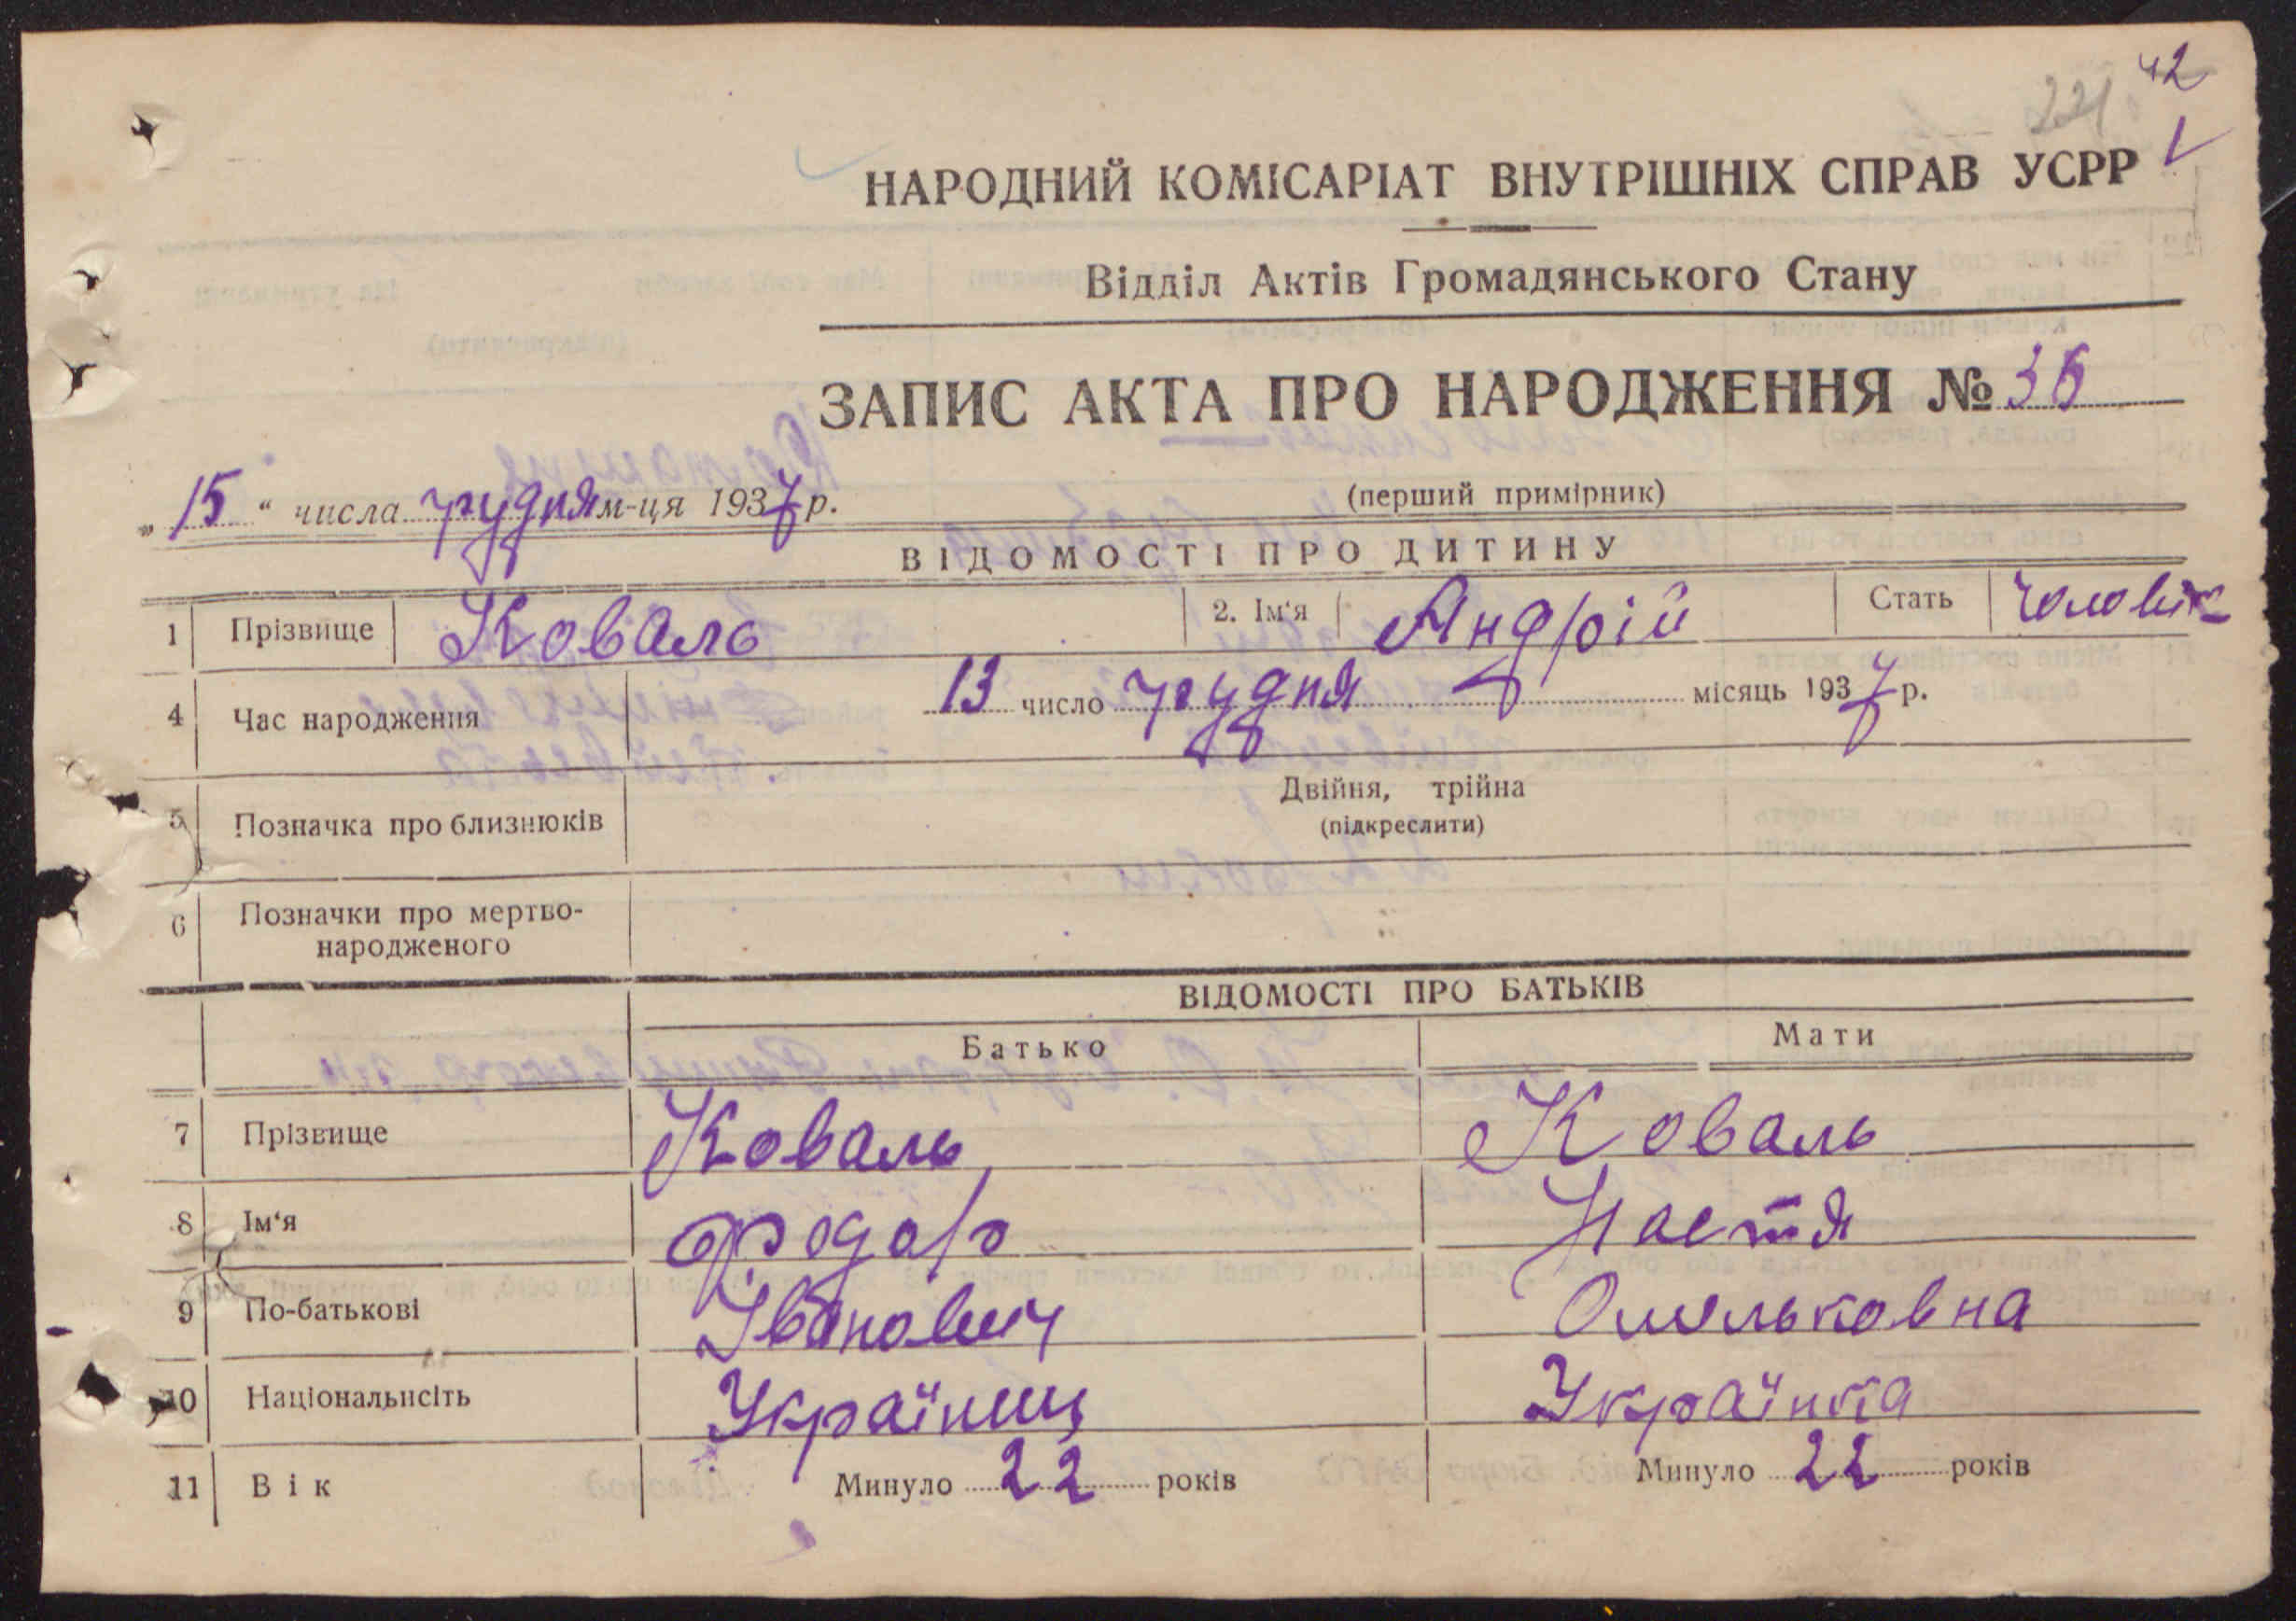 42
221
НАРОДНИЙ КОМІСАРІАТ ВНУТРІШНІХ СПРАВ УСРР
Відділ Актів Громадянського Стану
ЗАПИС АКТА ПРО НАРОДЖЕННЯ № 36
„ 15 “ числа грудня м-ця 1937 р.
(перший примірник)
ВІДОМОСТІ ПРО ДИТИНУ
1 Прізвище Коваль 2. Ім'я Андрій Стать чоловік
4 Час народження 13 число грудня місяць 1937 р.
5 Позначка про близнюків Двійня, трійна
(підкреслити)
6 Позначки про мертво-
народженого
ВІДОМОСТІ ПРО БАТЬКІВ
Батько Мати
7 Прізвище Коваль Коваль
8 Ім'я Федор Настя
9 По-батькові Іванович Омельковна
10 Національнсіть Україниц Українка
11 Вік Минуло 22 років Минуло 22 років